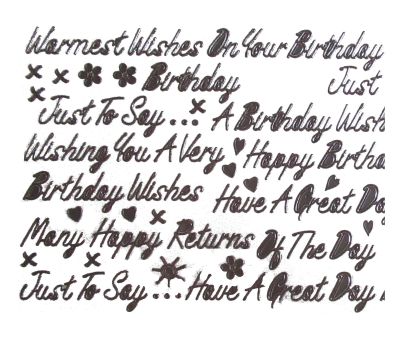 Warmest Wishes On Your Birthday
Birthday Just
Just To Say... A Birthday Wish
Wishing You A Very Happy Birthda
Birthday Wishes Have A Great Da
Many Happy Returns Of The Day
Just To Say... Have A Great Day